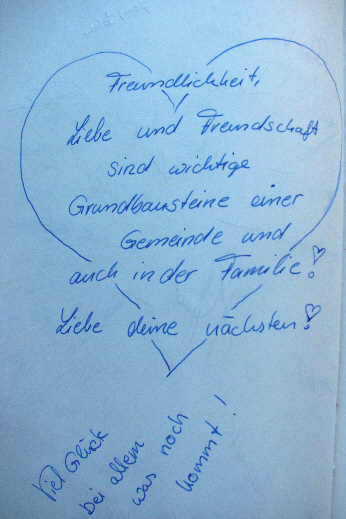 Freundlichkeit,
Liebe und Freundschaft
sind wichtige
Grundbausteine einer
Gemeinde und
auch in der Familie!
Liebe deine nächsten!
Viel Glück
bei allem
was noch
kommt!